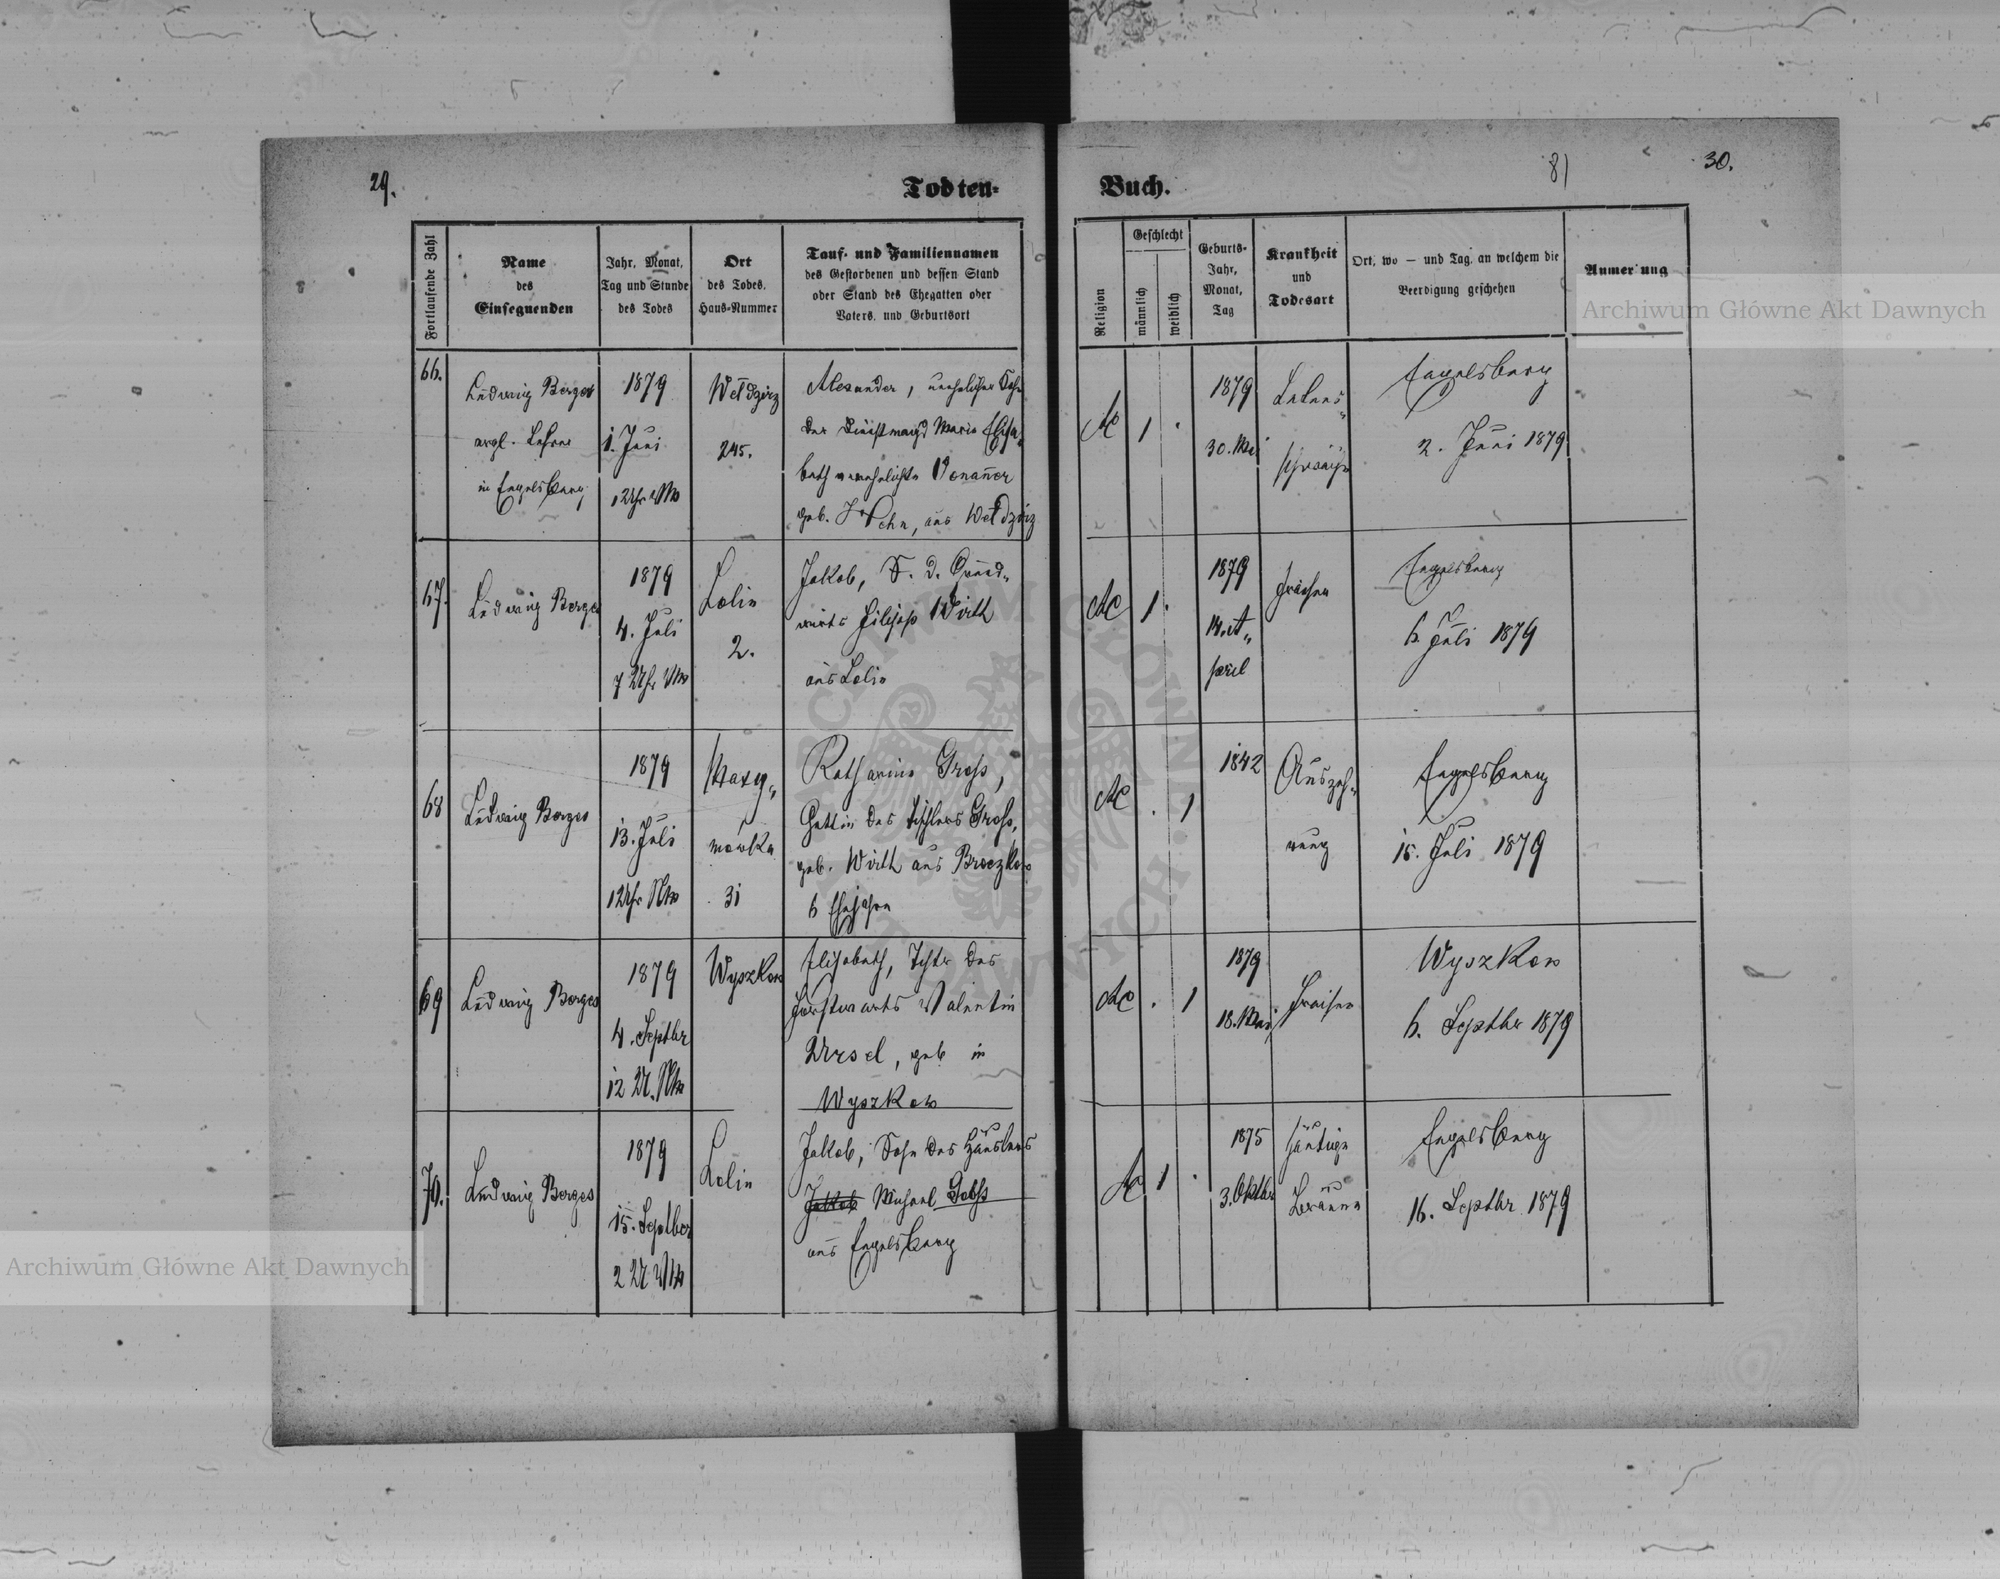 29.
Todten-
Buch.
81
30.
Fortlaufende Zahl
Name
des
Einsegnenden
Jahr, Monat,
Tag und Stunde
des Todes
Ort
des Todes,
Haus-Nummer
Tauf- und Familiennamen
des Gestorbenen und dessen Stand
oder Stand des Ehegatten oder
Vaters, und Geburtsort
Religion
Geschlecht
männlich
weiblich
Geburts-
Jahr,
Monat,
Tag
Krankheit
und
Todesart
Ort, wo — und Tag, an welchem die
Beerdigung geschehen
Anmerkung
66.
Ludwig Berges
evgl. Lehrer
in Engelsberg
1879
1. Juni
1 Uhr VM
Wełdzirz
245.
Alexander, unehelicher Sohn
der Dienstmagd Maria Elisa„
beth verehelichte
geb. aus Wełdzirz
AC
1
.
1879
30. Mai
Lebens„
schwäche
Engelsberg
2. Juni 1879
67.
Ludwig Berges
1879
4. Juli
7 Uhr VM
Lolin
2.
Jakob, S. d. Grund„
wirts Filipp Wirth
aus Lolin
AC
1
.
1879
14. A„
pril
Fraisen
Engelsberg
6. Juli 1879
68
Ludwig Berges
1879
13. Juli
1 Uhr NM
mówka
31
Katharina Gross,
Gattin des Tischlers Gross,
geb. Wirth aus Broczków
6 Ehejahre
AC
.
1
1842
Auszeh„
rung
Engelsberg
15. Juli 1879
69
Ludwig Berges
1879
4. Septbr
12 U. NM
Wyszków
Elisabeth, Tchtr des
Forstwarts Valentin
Ursel, geb in
Wyszków
AC
.
1
1879
18. Mai
Fraisen
Wyszków
6. Septbr 1879
70.
Ludwig Berges
1879
15. Septber
2 U VM
Lolin
Jakob, Sohn des Häuslers
Jakob Michael
aus Engelsberg
AC
1
.
1875
3. Oktbr
Häutige
Bräune
Engelsberg
16. Septbr 1879
Archiwum Główne Akt Dawnych
Archiwum Główne Akt Dawnych
ARCHIWUM GŁÓWNE AKT DAWNYCH